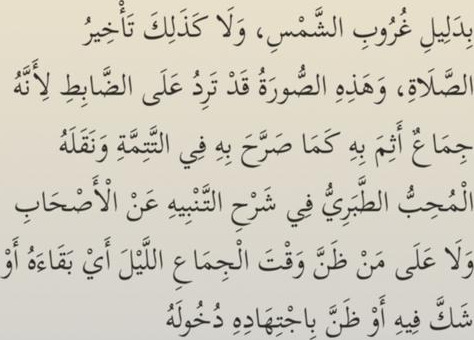 بِدَلِيلِ غُرُوبِ الشَّمْسِ، وَلَا كَذَلِكَ تَأْخِيرُ
الصَّلَاةِ، وَهَذِهِ الصُّورَةُ قَدْ تَرِدُ عَلَى الضَّابِطِ لِأَنَّهُ
جِمَاعٌ أَثِمَ بِهِ كَمَا صَرَّحَ بِهِ فِي التَّتِمَّةِ وَنَقَلَهُ
الْمُحِبُّ الطَّبَرِيُّ فِي شَرْحِ التَّنْبِيهِ عَنْ الْأَصْحَابِ
وَلَا عَلَى مَنْ ظَنَّ وَقْتَ الْجِمَاعِ اللَّيْلَ أَيْ بَقَاءَهُ أَوْ
شَكَّ فِيهِ أَوْ ظَنَّ بِاجْتِهَادِهِ دُخُولَهُ